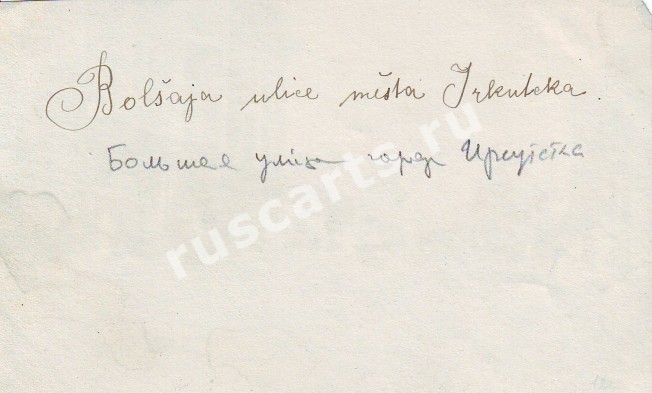 Bolšaja ulice města Irkutska.
Большая улица город Иркутска
ruscarts.ru